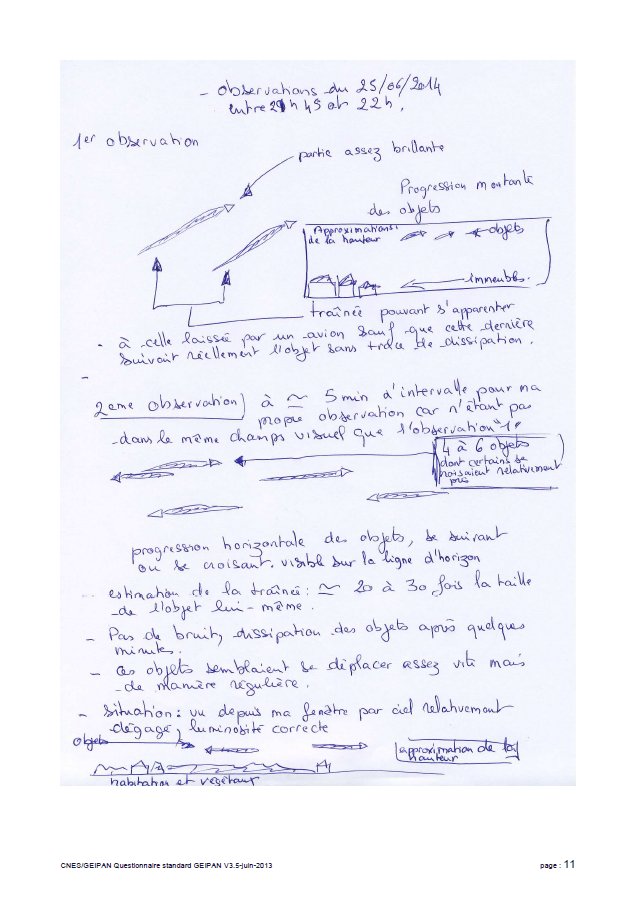 - Observations du 25/06/2014
entre 21h45 et 22h.
1er observation
partie assez brillante
Progression montante
des objets
Approximations
de la hauteur
objets
immeubles.
traînée pouvant s'apparenter
- à celle laissée par un avion sauf que cette dernière
suivait réellement l'objet sans trace de dissipation.
-
2eme observation) à ≃ 5 min d'intervalle pour ma
propre observation car n'étant pas
dans le même champs visuel que l'observation "1"
4 à 6 objets
dont certains se
croisaient relativement
près
progression horizontale des objets, se suivant
ou se croisant. visible sur la ligne d'horizon
- estimation de la traînée : ≃ 20 à 30 fois la taille
de l'objet lui-même.
- Pas de bruit, dissipation des objets après quelques
minutes.
- Ces objets semblaient se déplacer assez vite mais
de manière régulière.
- Situation : vu depuis ma fenêtre par ciel relativement
dégagé, luminosité correcte
objets
approximation de la
hauteur
habitation et végétaux
CNES/GEIPAN Questionnaire standard GEIPAN V3.5-juin-2013 page : 11